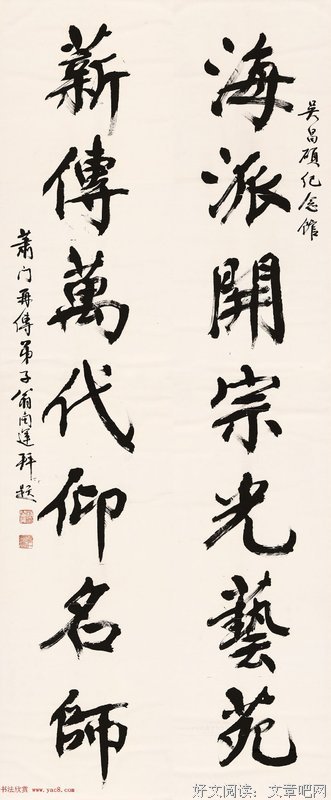 吴昌碩纪念馆
海派開宗光藝苑
薪傳萬代仰名師
蕭门再傳弟子翁闿運拜题
书法欣赏 www.yac8.com
好文阅读：文章吧网